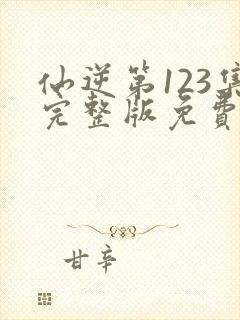 仙逆第123集
完整版免費
甘辛